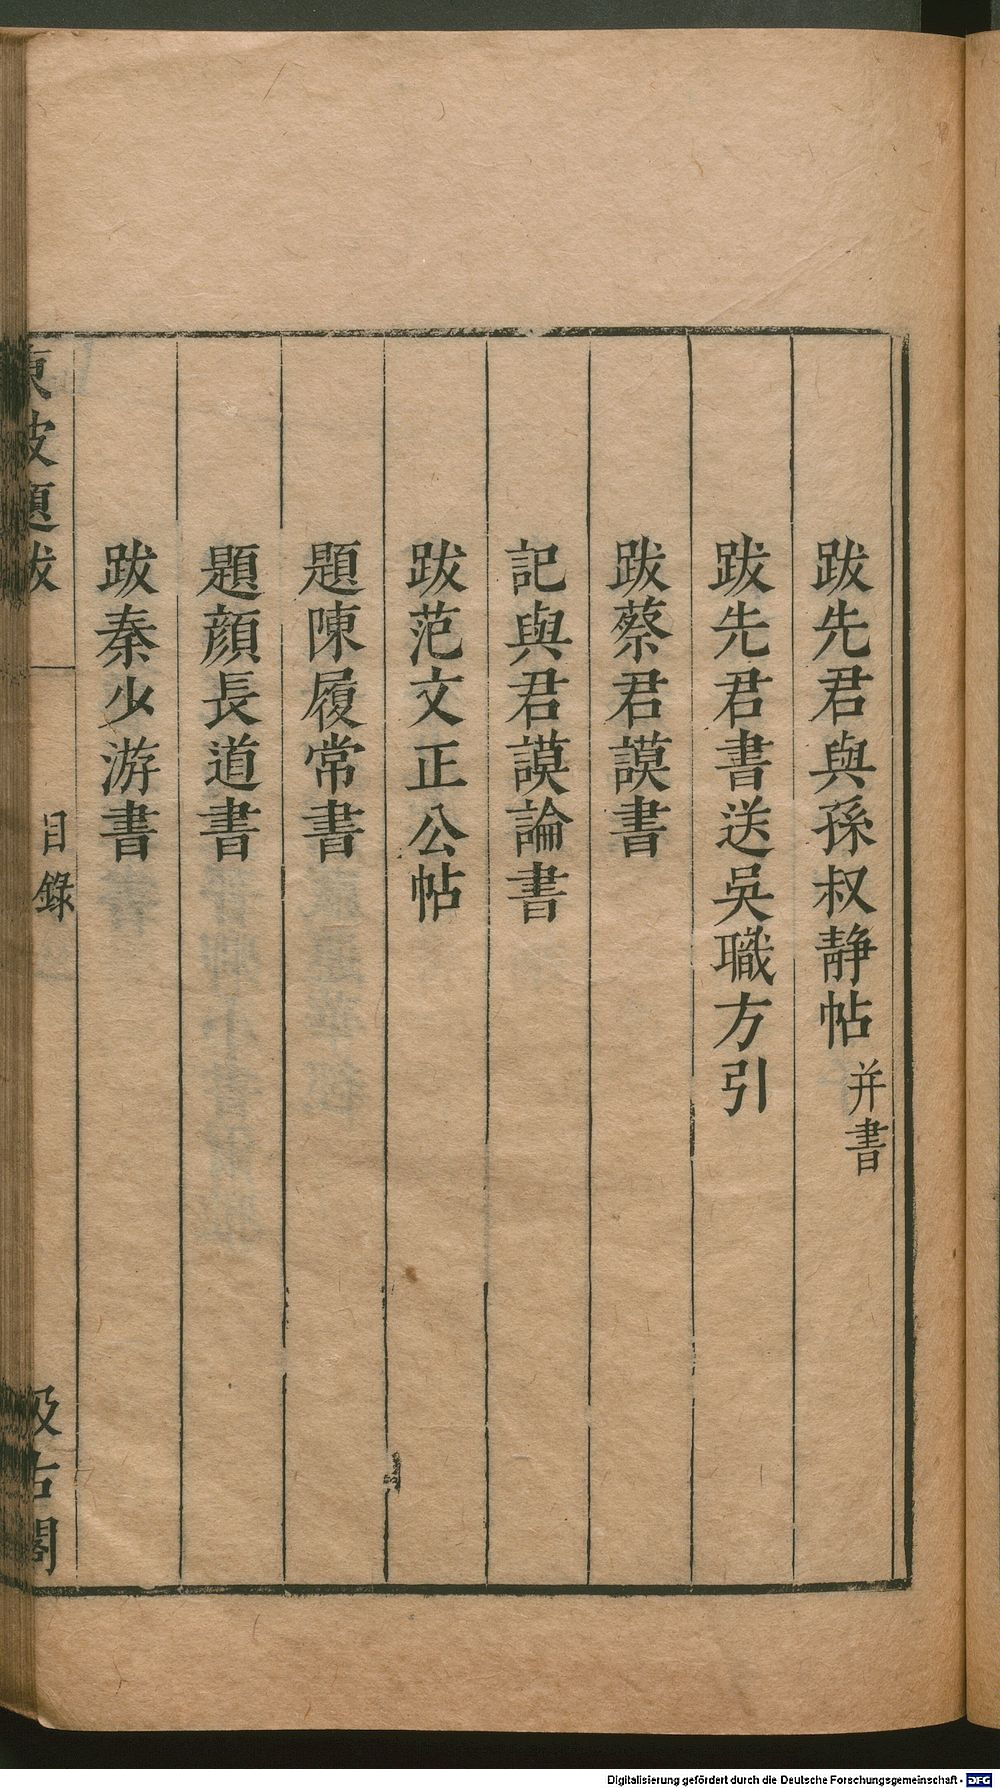 跋先君與孫叔靜帖 并書
跋先君書送吳職方引
跋蔡君謨書
記與君謨論書
跋范文正公帖
題陳履常書
題顔長道書
跋秦少游書
東坡題跋 目錄 汲古閣
Digitalisierung gefördert durch die Deutsche Forschungsgemeinschaft - DFG